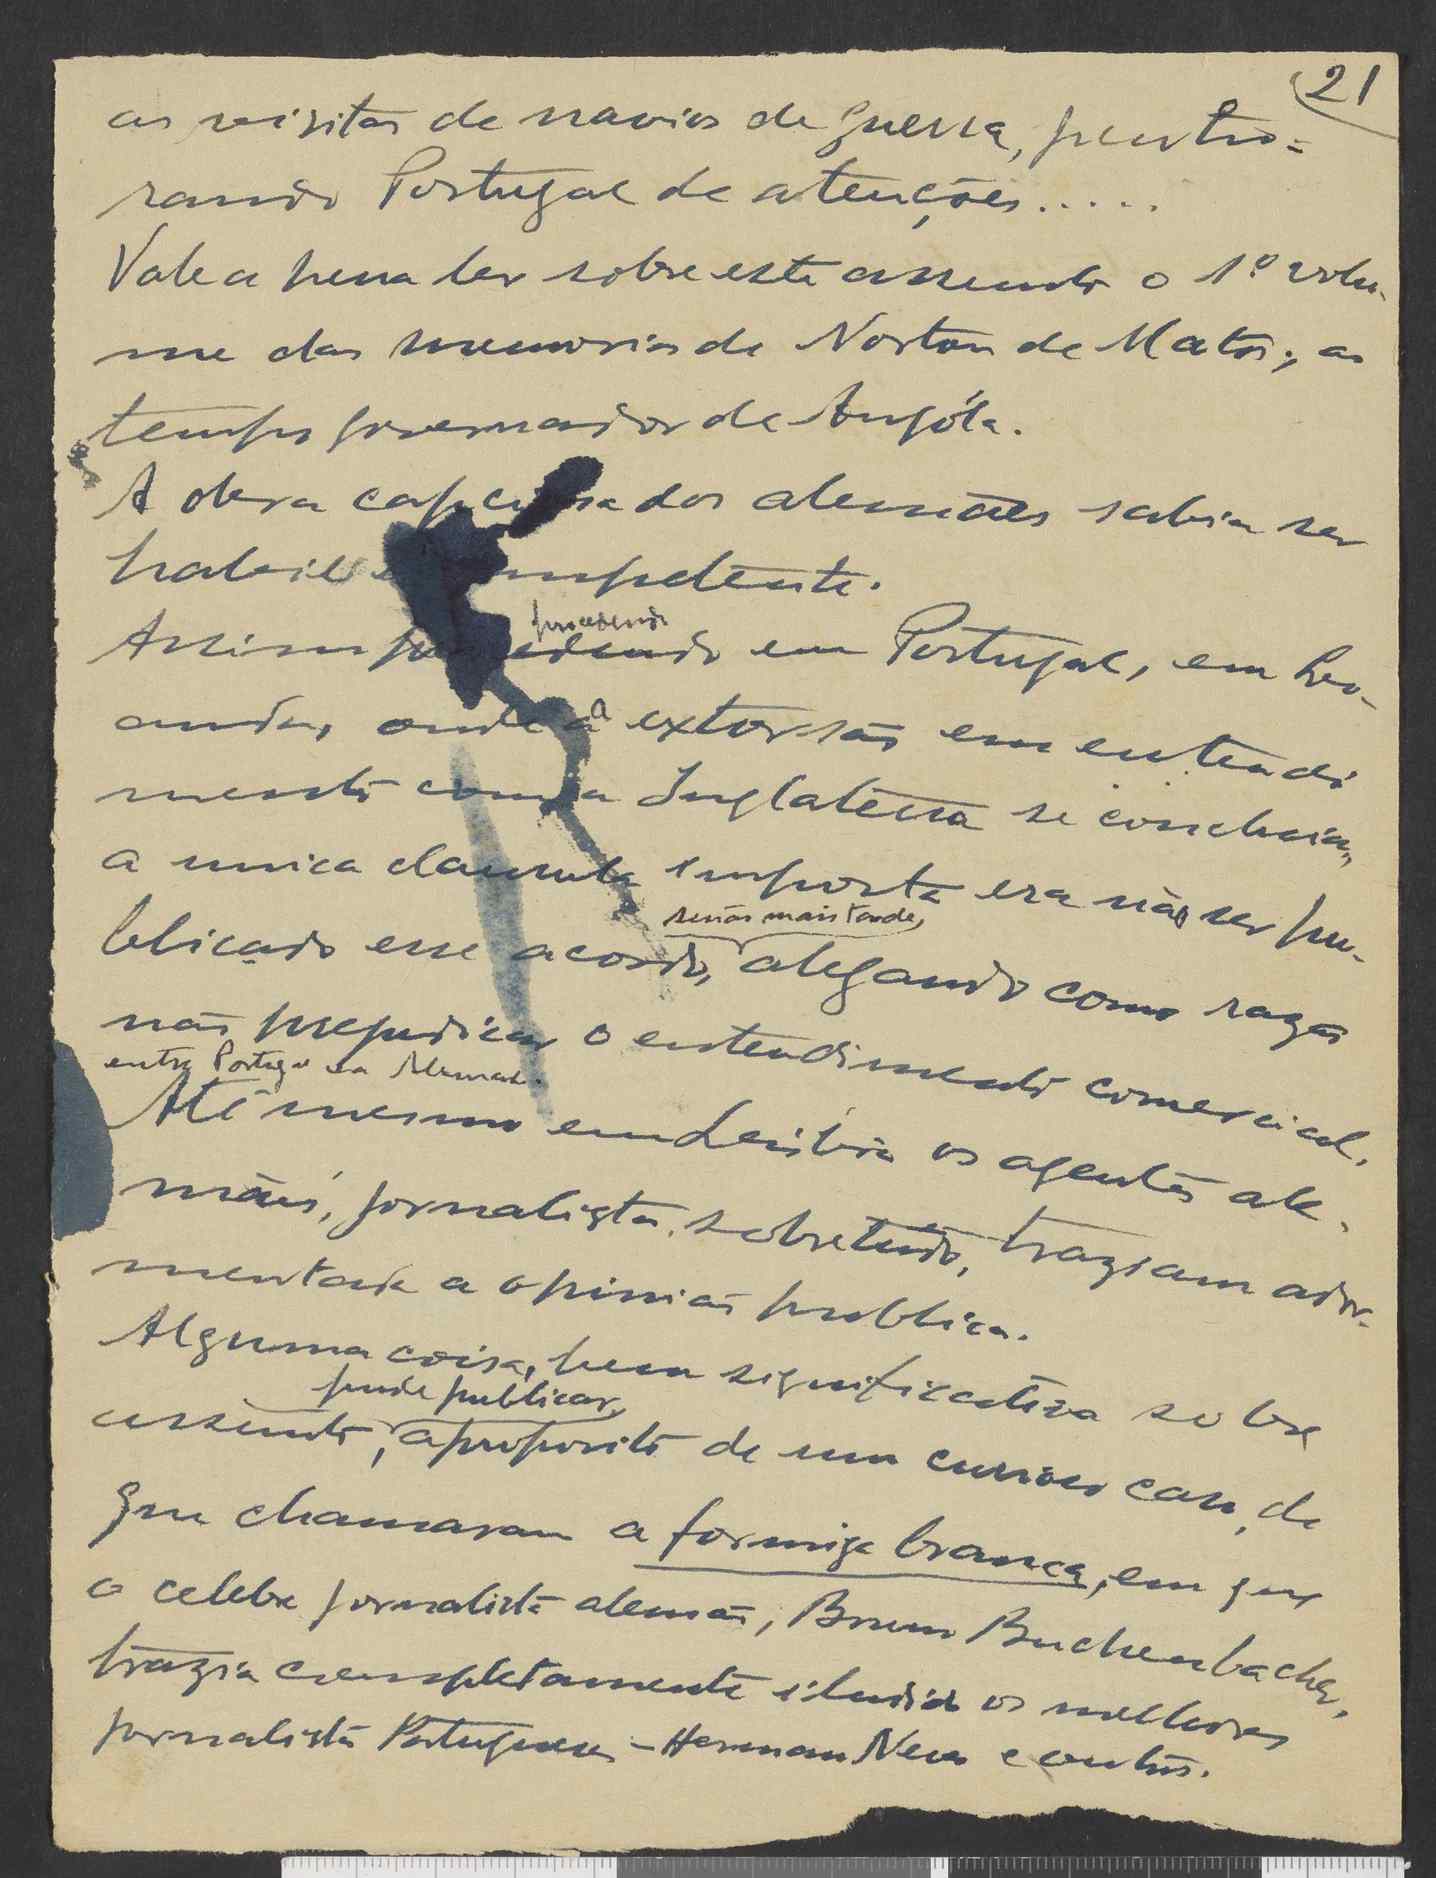 21
as visitas de navios de guerra, pentho=
rando Portugal de atenções.....
Vale a pena ler sobre este assunto o 1º volu-
me das memorias de Norton de Matos, ao
tempo governador de Angóla.
A obra capciosa dos alemães sabia ser
habil e competente.
procedendo
Assim procedendo em Portugal, em Lou-
anda, onde a extorsão em entendi
mento com a Inglaterra se concluia,
a unica clausula imposta era não ser pu-
senão mais tarde,
blicado esse acordo, alegando como razão
não prejudicar o entendimento comercial.
entre Portugal e a Alemanha.
Até mesmo em Lisbôa os agentes ale-
mães, jornalistas sobretudo, traziam ador-
mentada a opinião publica.
Alguma coisa, bem significativa sobre
pude publicar,
assunto, a proposito de um curioso caso, de
que chamaram a formiga branca, em que
o celebre jornalista alemão, Bruno Buchenbacher,
trazia completamente iludido os melhores
jornalistas Portugueses - Herman Neves e outros.